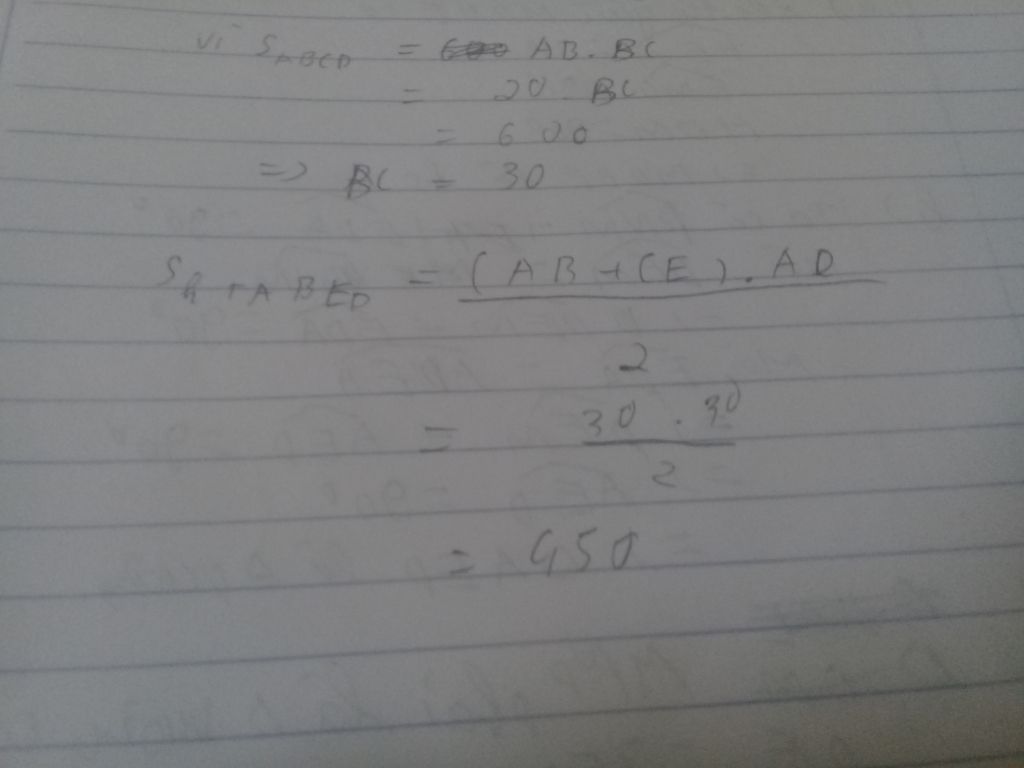 Vì S_ABCD = AB. BC
= 20 BC
= 600
=> BC = 30
S_htABED = (AB + CE). AD
2
= 30 . 30
2
= 450